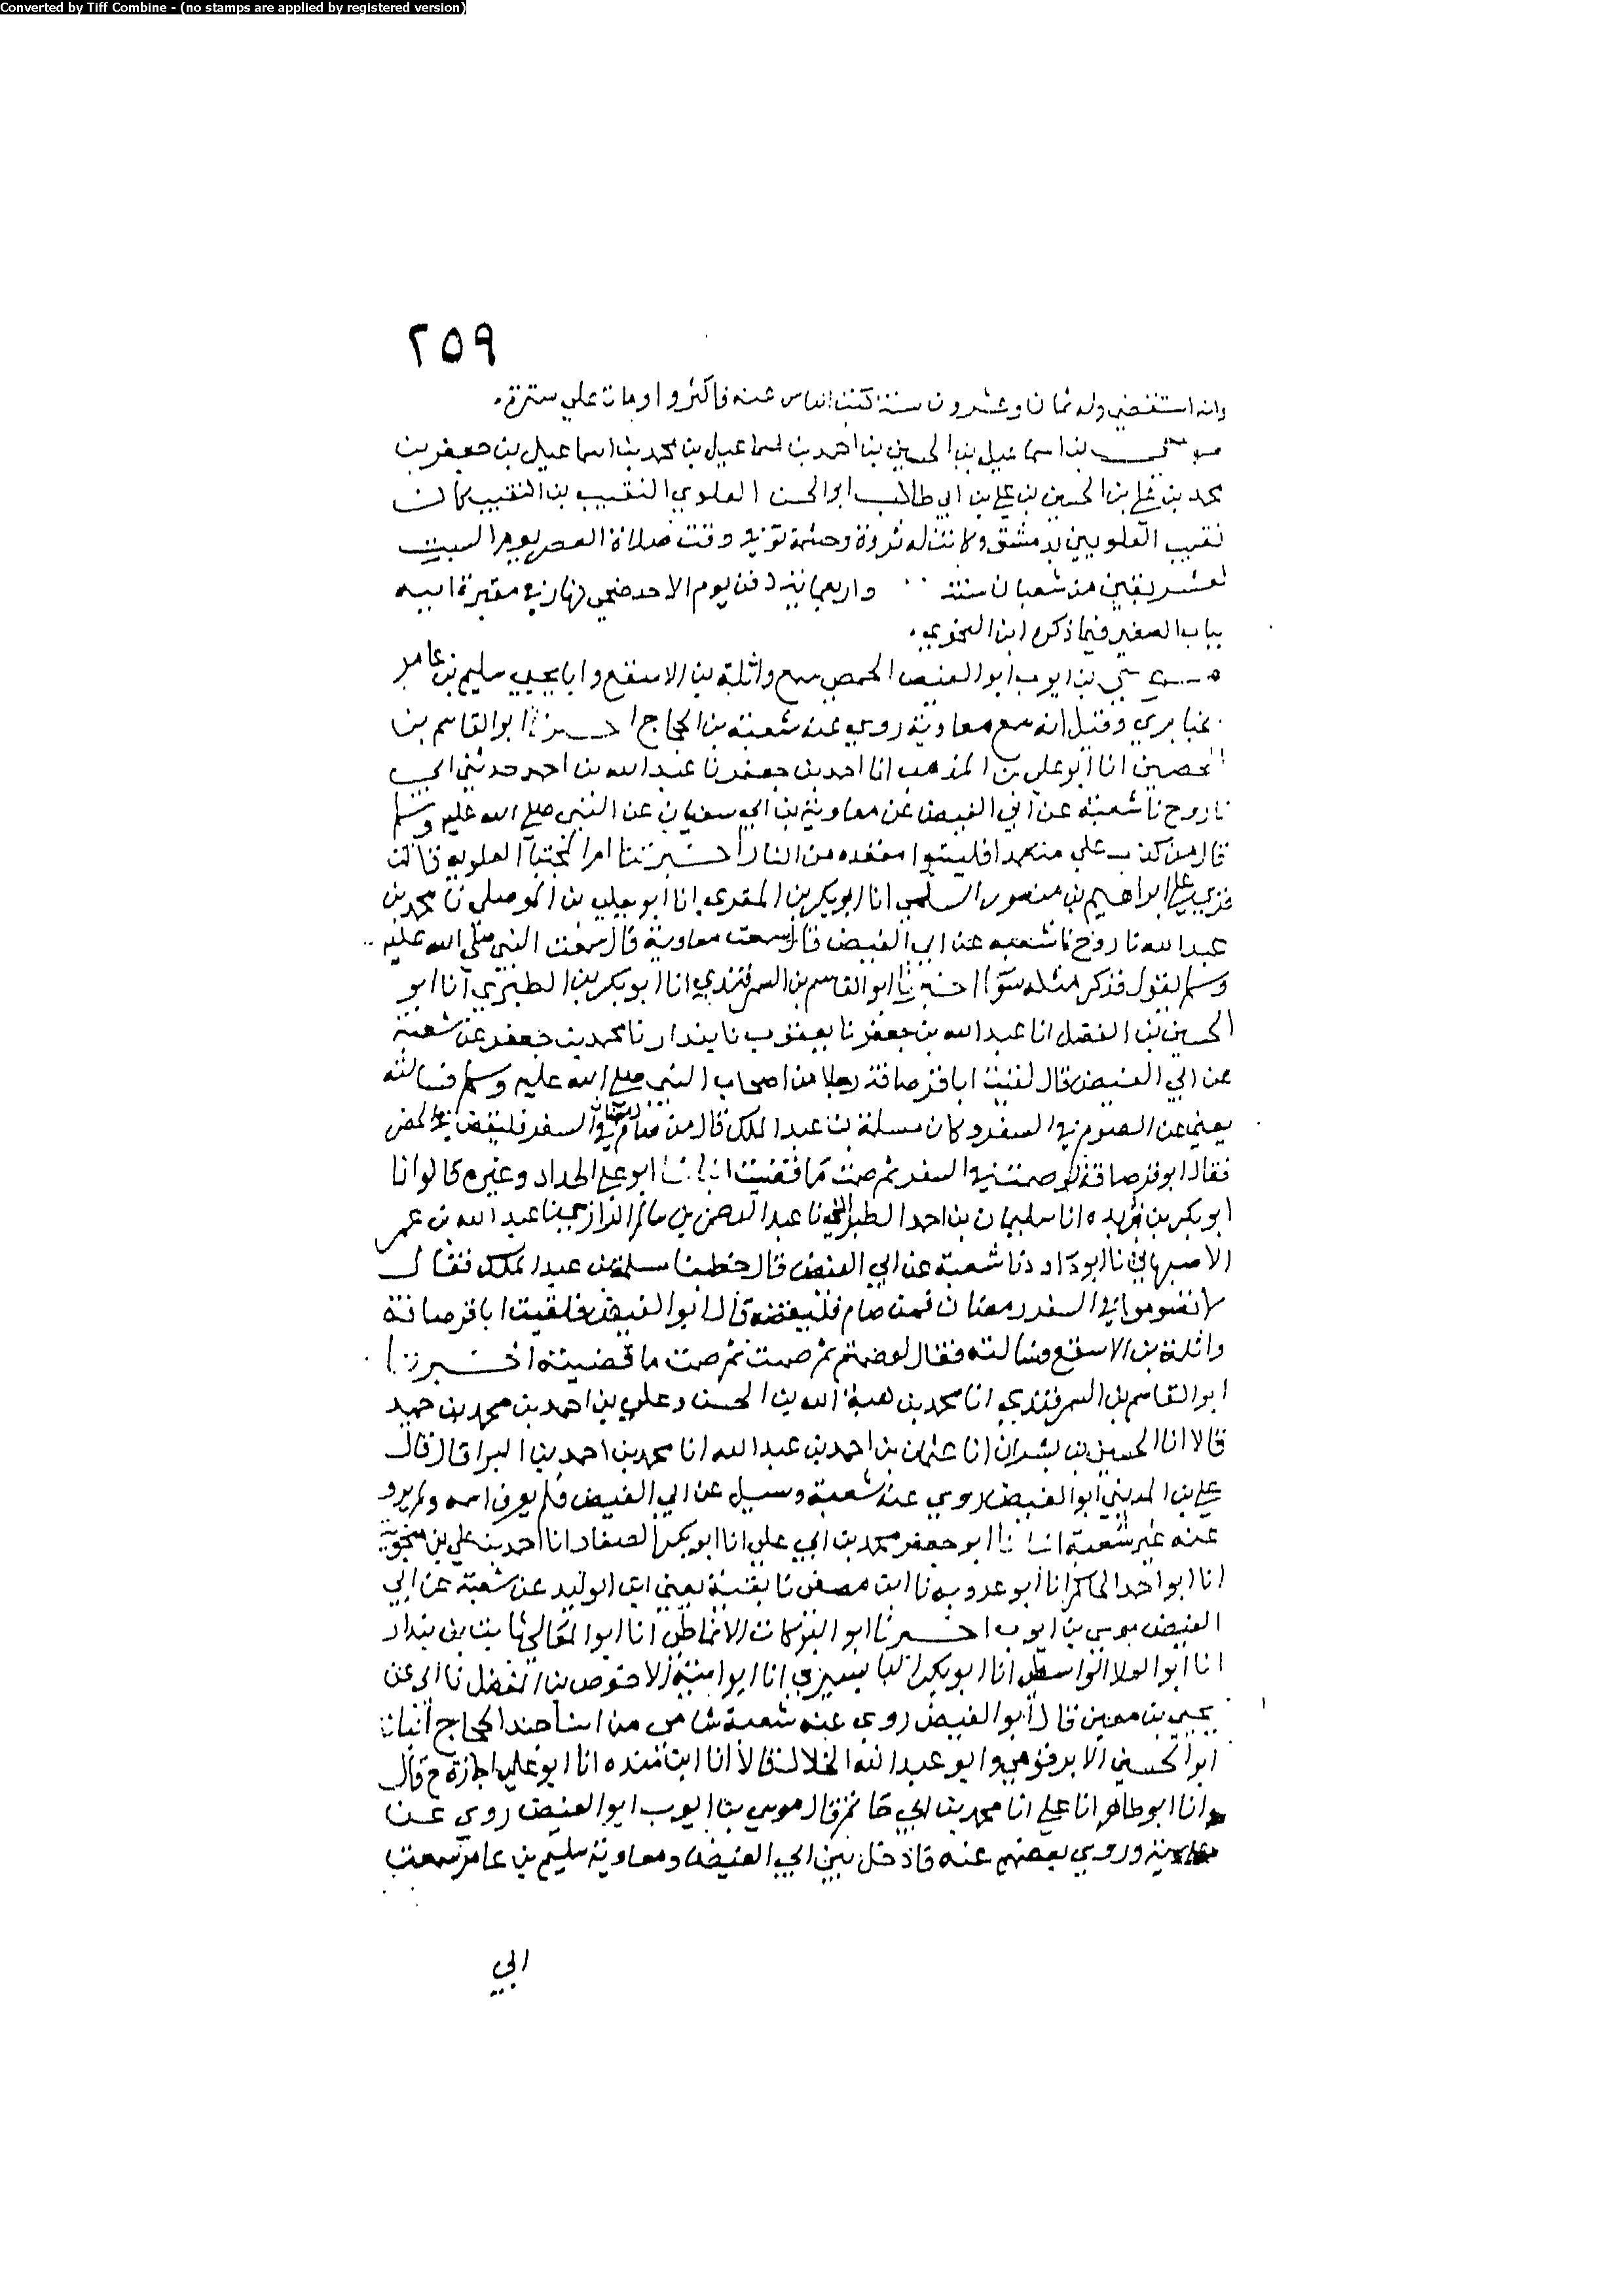 Converted by Tiff Combine - (no stamps are applied by registered version)
٢٥٩
وانه استقضي وله ثمان وعشرون سنة كتب الناس عنه فاكثروا ومات علي سترة.
موسي بن اسماعيل بن الحسين بن احمد بن اسماعيل بن محمد بن اسماعيل بن جعفر بن
محمد بن علي بن الحسين بن علي بن ابي طالب ابو الحسن العلوي النقيب بن النقيب كان
نقيب العلويين بدمشق وكانت له ثروة وحشمة توفي وقت صلاة العصر يوم السبت
لعشر بقين من شعبان سنة واربعماية دفن يوم الاحد ضحي نهار في مقبرة ابيه
بباب الصغير فيما ذكره ابن النحوي.
موسي بن ايوب ابو الفيض الحمصي سمع واثلة بن الاسقع وابا يحيي سليم بن عامر
الخبايري وقيل انه سمع معاوية روي عنه شعبة بن الحجاج اخبرنا ابو القاسم بن
الحصين انا ابو علي بن المذهب انا احمد بن جعفر نا عبد الله بن احمد حدثني ابي
نا روح نا شعبة عن ابي الفيض عن معاوية بن ابي سفيان عن النبي صلي الله عليه وسلم
قال من كذب علي متعمدا فليتبوا مقعده من النار اخبرتنا ام المجتبا العلوية قالت
قري علي ابراهيم بن منصور السلمي انا ابو بكر بن المقري انا ابو يعلي بن الموصلي نا محمد بن
عبد الله نا روح نا شعبه عن ابي الفيض قال سمعت معاوية قال سمعت النبي صلي الله عليه
وسلم يقول فذكر مثله سوا اخبرنا ابو القاسم بن السمرقندي انا ابو بكر بن الطبري انا ابو
الحسين بن الفضل انا عبد الله بن جعفر نا يعقوب نا بندار نا محمد بن جعفر عن شعبة
عن ابي الفيض قال لقيت ابا قرصافة رجلا من اصحاب النبي صلي الله عليه وسلم فسالته
يعني عن الصوم في السفر وكان مسلمة بن عبد الملك قال من صام رمضان في السفر فليقض في الحضر
فقال ابو قرصافة لو صمت في السفر ثم صمت ما قضيت انبانا ابو علي الحداد وغيره قالوا انا
ابو بكر بن ريده انا سليمان بن احمد الطبراني نا عبد الرحمن بن سالم الرازي نا عبد الله بن عمر
الاصبهاني نا ابو داود نا شعبة عن ابي الفيض قال خطبنا مسلمة بن عبد الملك فقال
لا تصوموا في السفر رمضان فمن صام فليقضه قال ابو الفيض فلقيت ابا قرصافة
واثلة بن الاسقع فسالته فقال لو صمت ثم صمت ثم صمت ما قضيته اخبرنا
ابو القاسم بن السمرقندي انا محمد بن هبة الله بن الحسن وعلي بن احمد بن محمد بن حميد
قالا انا الحسين بن بشران انا عثمان بن احمد بن عبد الله انا محمد بن احمد بن البرا قال قال
علي بن المديني ابو الفيض روي عنه شعبة وسيل عن ابي الفيض فلم يعرف اسمه ولم يرو
عنه غير شعبة انبانا ابو جعفر محمد بن ابي علي انا ابو بكر الصفار انا احمد بن علي بن منجوية
انا ابو احمد الحاكم انا ابو عروبه نا ابن مصفي نا بقية يعني ابن الوليد عن شعبة عن ابي
الفيض موسي بن ايوب اخبرنا ابو البركات الانماطي انا ابو المعالي ثابت بن بندار
انا ابو العلا الواسطي انا ابو بكر البابسيري انا ابو امية الاحوص بن المفضل نا ابي عن
يحيي بن معين قال ابو الفيض روي عنه شعبة شامي من اهل جند الحجاج انبانا
ابو الحسين الابرقوهي وابو عبد الله الخلال قالا انا ابن منده انا ابو علي اجازة ح قال
وانا ابو طاهر انا علي انا محمد بن ابي حاتم قال موسي بن ايوب ابو الفيض روي عن
معاوية وروي بعضهم عنه فادخل بين ابي الفيض ومعاوية سليم بن عامر سمعت
ابي